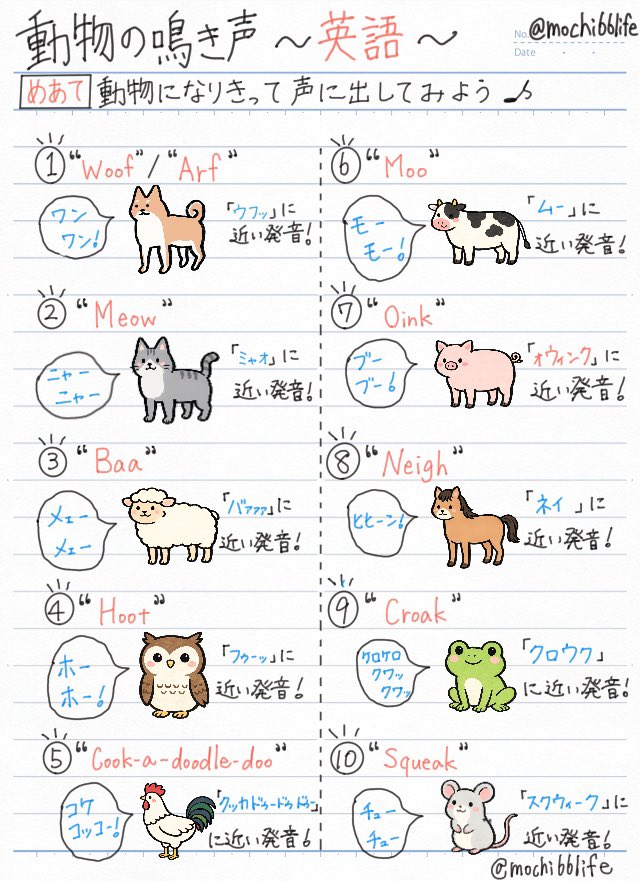 動物の鳴き声 ～英語～
No.
@mochibblife
Date
めあて 動物になりきって声に出してみよう♪
① "Woof" / "Arf"
ワン
ワン!
「ウフッ」に
近い発音!
② "Meow"
ニャー
ニャー
「ミャオ」に
近い発音!
③ "Baa"
メェー
メェー
「バァァァ」に
近い発音!
④ "Hoot"
ホー
ホー!
「フゥーッ」に
近い発音!
⑤ "Cook-a-doodle-doo"
コケ
コッコー!
「クッカドゥードゥドゥー」
に近い発音!
⑥ "Moo"
モー
モー!
「ムー」に
近い発音!
⑦ "Oink"
ブー
ブー!
「オウィンク」に
近い発音!
⑧ "Neigh"
ヒヒーン!
「ネイ」に
近い発音!
⑨ "Croak"
ケロケロ
クワッ
クワッ
「クロウク」
に近い発音!
⑩ "Squeak"
チュー
チュー
「スクウィーク」に
近い発音!
@mochibblife